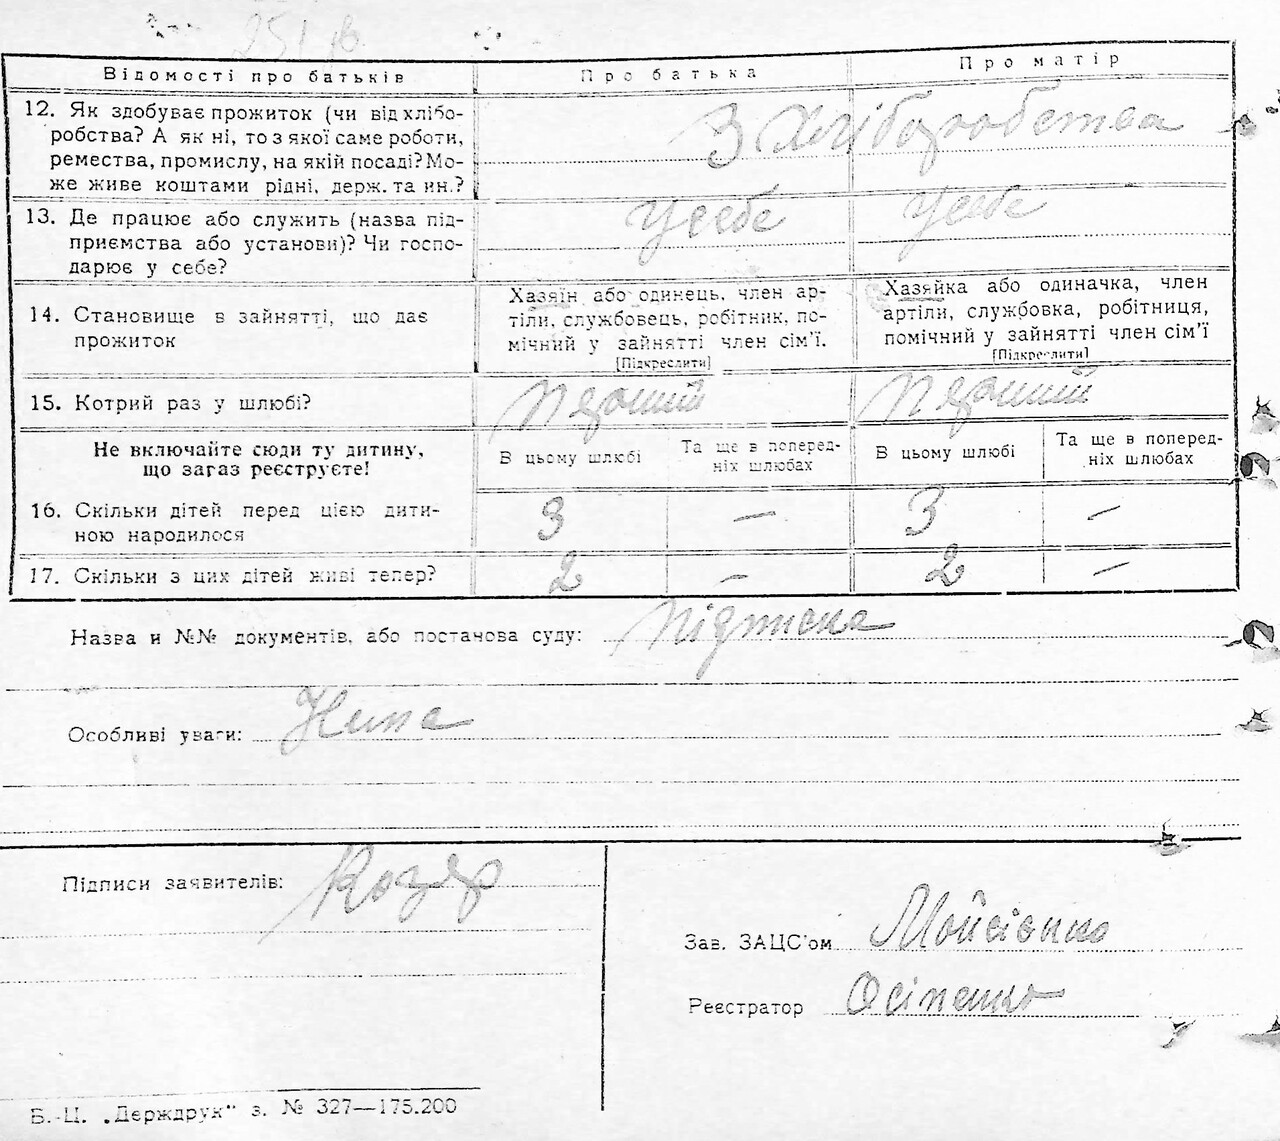 251 зв.
Відомості про батьків
Про батька
Про матір
12. Як здобуває прожиток (чи від хлібо-
робства? А як ні, то з якої саме роботи,
ремества, промислу, на якій посаді? Мо-
же живе коштами рідні, держ. та ин.?
З хліборобства
13. Де працює або служить (назва під-
приємства або установи)? Чи госпо-
дарює у себе?
У себе
У себе
14. Становище в зайнятті, що дає
прожиток
Хазяїн або одинець, член ар-
тіли, службовець, робітник, по-
мічний у зайнятті член сім'ї.
[Підкреслити]
Хазяйка або одиначка, член
артіли, службовка, робітниця,
помічний у зайнятті член сім'ї
[Підкреслити]
15. Котрий раз у шлюбі?
Перший
Перший
Не включайте сюди ту дитину,
що загаз реєструєте!
В цьому шлюбі
Та ще в поперед-
ніх шлюбах
В цьому шлюбі
Та ще в поперед-
ніх шлюбах
16. Скільки дітей перед цією дити-
ною народилося
3
—
3
—
17. Скільки з цих дітей живі тепер?
2
—
2
—
Назва и №№ документів, або постанова суду: Підписка
Особливі уваги: Нима
Підписи заявителів: Козер
Зав. ЗАЦС'ом Мойсієнко
Реєстратор Осіпенко
Б.-Ц. „Держдрук" з. № 327—175.200